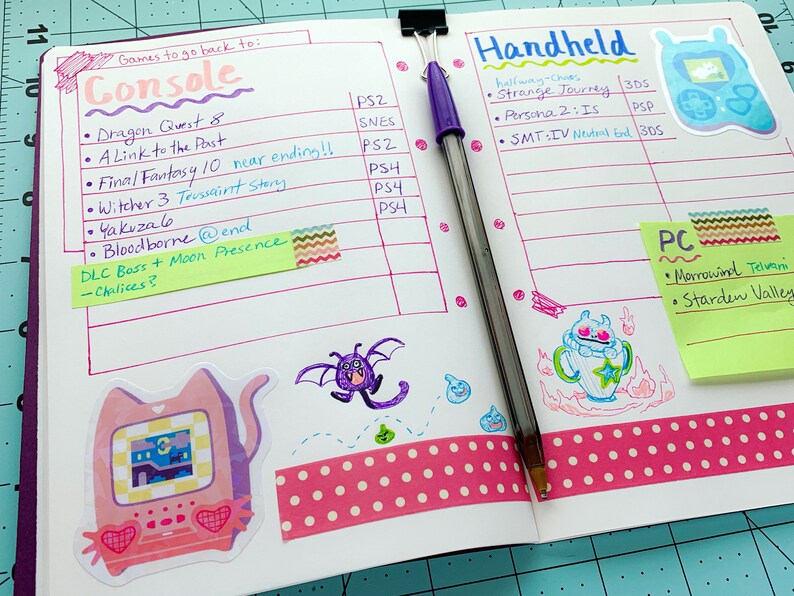 Games to go back to:
Console
• Dragon Quest 8 PS2
• A Link to the Past SNES
• Final Fantasy 10 near ending!! PS2
• Witcher 3 Toussaint Story PS4
• Yakuza 6 PS4
• Bloodborne @ end PS4
DLC Boss + Moon Presence
– Chalices?
Handheld
halfway-Chaos
• Strange Journey 3DS
• Persona 2: IS PSP
• SMT: IV Neutral End. 3DS
PC
• Morrowind Telvani
• Stardew Valley
11
10
10